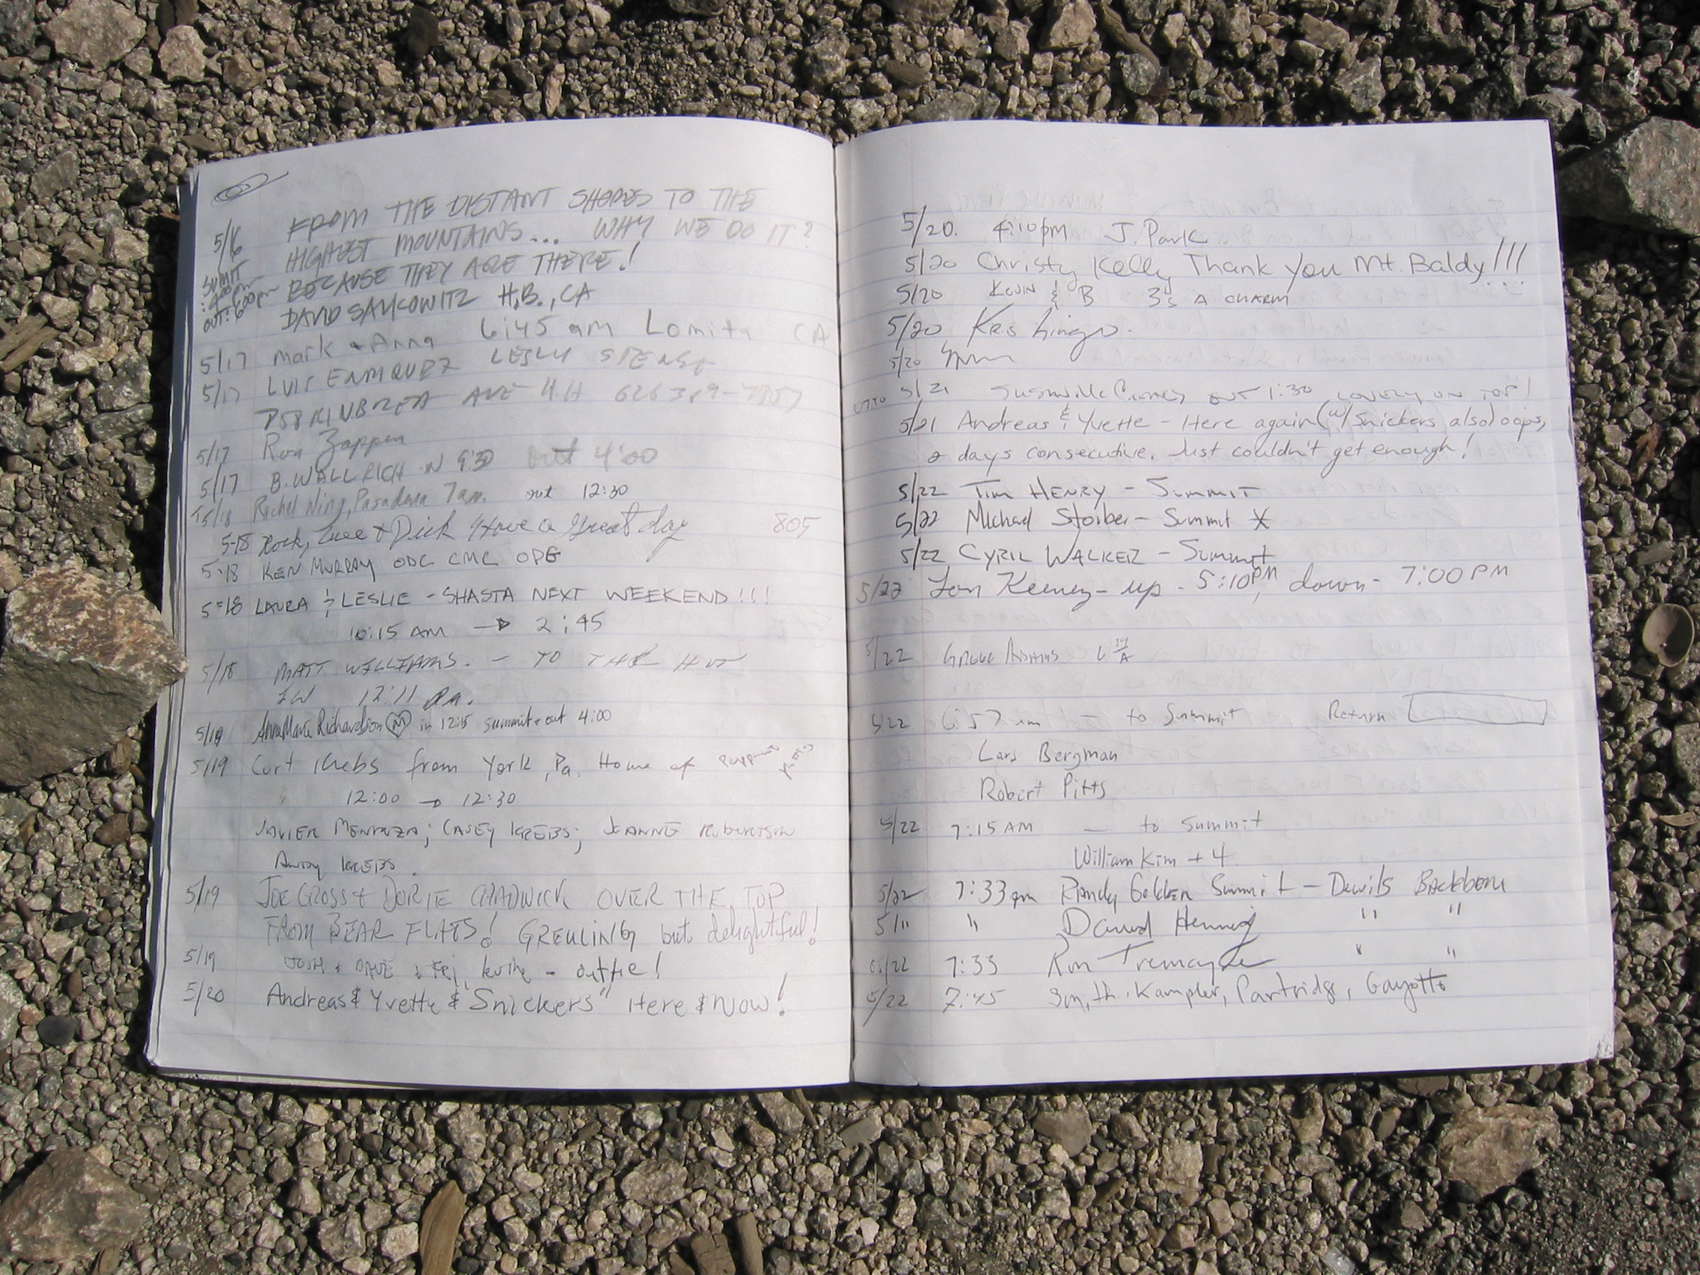 5/16 FROM THE DISTANT SHORES TO THE
HIGHEST MOUNTAINS... WHY WE DO IT?
SUMIT BECAUSE THEY ARE THERE!
OUT: 6:00pm DAVID H.B., CA
5/17 Mark & Anna 6:45 am Lomita CA
5/17 LUIS ENRIQUEZ LESLY
AVE H H 626
5/17 Ron Zappen
5/17 B. WALLRICH IN 9:30 out 4:00
5/18 Rachel Ning, Pasadena 7am. out 12:30
5-18 Rock, & Dick Have a Great day 805
5-18 KEN MURRAY ODC CMC OPG
5-18 LAURA & LESLIE - SHASTA NEXT WEEKEND!!!
10:15 AM → 2:45
5/18 MATT WILLIAMS. - TO THE HUT
12:11 pm.
5/19 AnnaMarie Richardson M in 12:15 summit & out 4:00
5/19 Curt Krebs from York, Pa. Home of
12:00 → 12:30
JAVIER MENDOZA; CASEY KREBS; JEANNE ROBERTSON
Andy KREBS.
5/19 JOE GROSS & DORIE CHADWICK OVER THE TOP
FROM BEAR FLATS! GREULING but delightful!
5/19 JOSH & DAVE &
5/20 Andreas & Yvette & "Snickers" Here & Now!
5/20. 4:10pm J. Park
5/20 Christy Kelly Thank you Mt. Baldy!!!
5/20 KEVIN & B 3's A CHARM
5/20
5/20
5/21 OUT 1:30 LOVELY ON TOP!
5/21 Andreas & Yvette - Here again (w/ Snickers also) oops,
2 days consecutive. Just couldn't get enough!
5/22 TIM HENRY - SUMMIT
5/22 Michael Stoiber - Summit
5/22 CYRIL WALKER - Summit
5/22 Keeney - up - 5:10 PM, down - 7:00 PM
5/22 Adams
5/22 6:57 am - to Summit Return
Lars Bergman
Robert Pitts
5/22 7:15 AM - to Summit
William Kim + 4
5/22 7:33 am Randy Golden Summit - Devils Backbone
5/" " David Hennig " "
5/22 7:33 Ron Tremayne " "
5/22 7:45 Smith, Kampler, Partridge, Gayotto